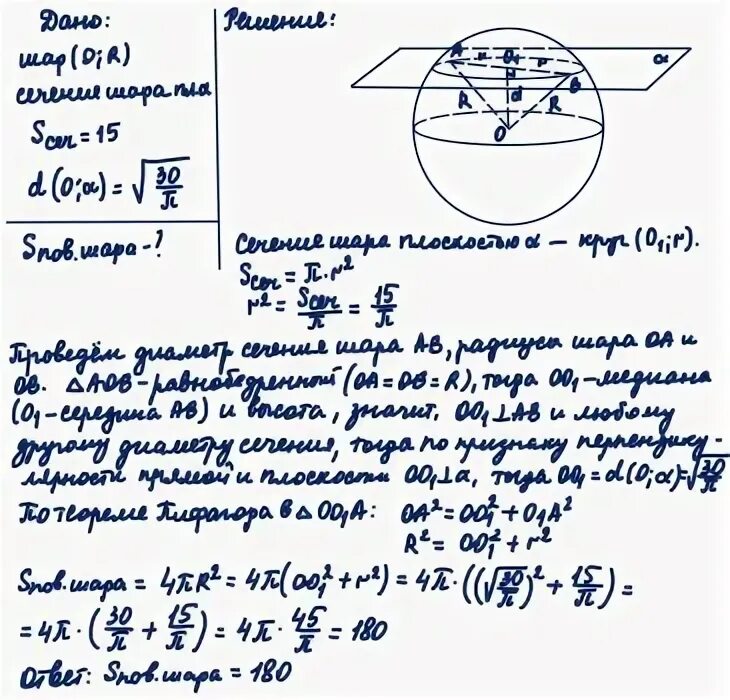 Дано:
шар (O; R)
сечение шара пла
Sсеч = 15
d (O; α) = √(30/π)
Sпов. шара - ?
Решение:
A r O₁ r B α
R d R
O
Сечение шара плоскостью α — круг (O₁; r).
Sсеч = π · r²
r² = Sсеч/π = 15/π
Проведём диаметр сечения шара AB, радиусы шара OA и
OB. △AOB - равнобедренный (OA = OB = R), тогда OO₁ - медиана
(O₁ - середина AB) и высота, значит. OO₁ ⊥ AB и любому
другому диаметру сечения, тогда по признаку перпендику-
лярности прямой и плоскости OO₁ ⊥ α, тогда OO₁ = d (O; α) = √(30/π)
По теореме Пифагора в △ OO₁A: OA² = OO₁² + O₁A²
R² = OO₁² + r²
Sпов. шара = 4πR² = 4π(OO₁² + r²) = 4π · ((√(30/π))² + 15/π) =
= 4π · (30/π + 15/π) = 4π · 45/π = 180
Ответ: Sпов. шара = 180